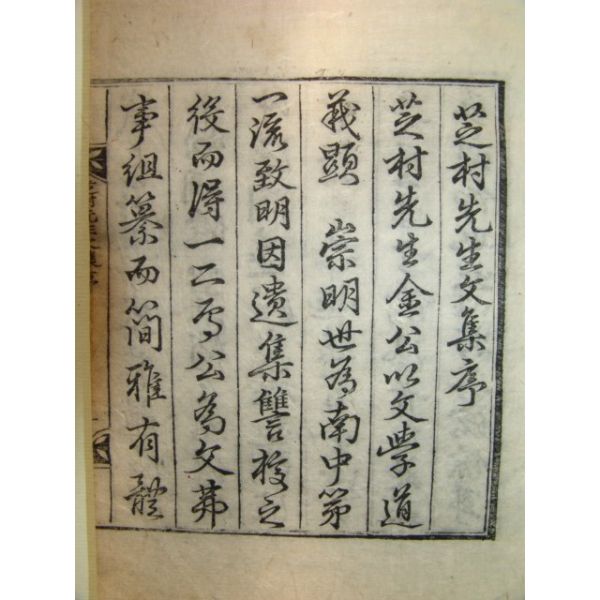 芝村先生文集序
芝村先生金公以文學道
義顯 崇明世爲南中第
一流致明因遺集讐校之
役而得一二焉公爲文弗
事組纂而簡雅有體